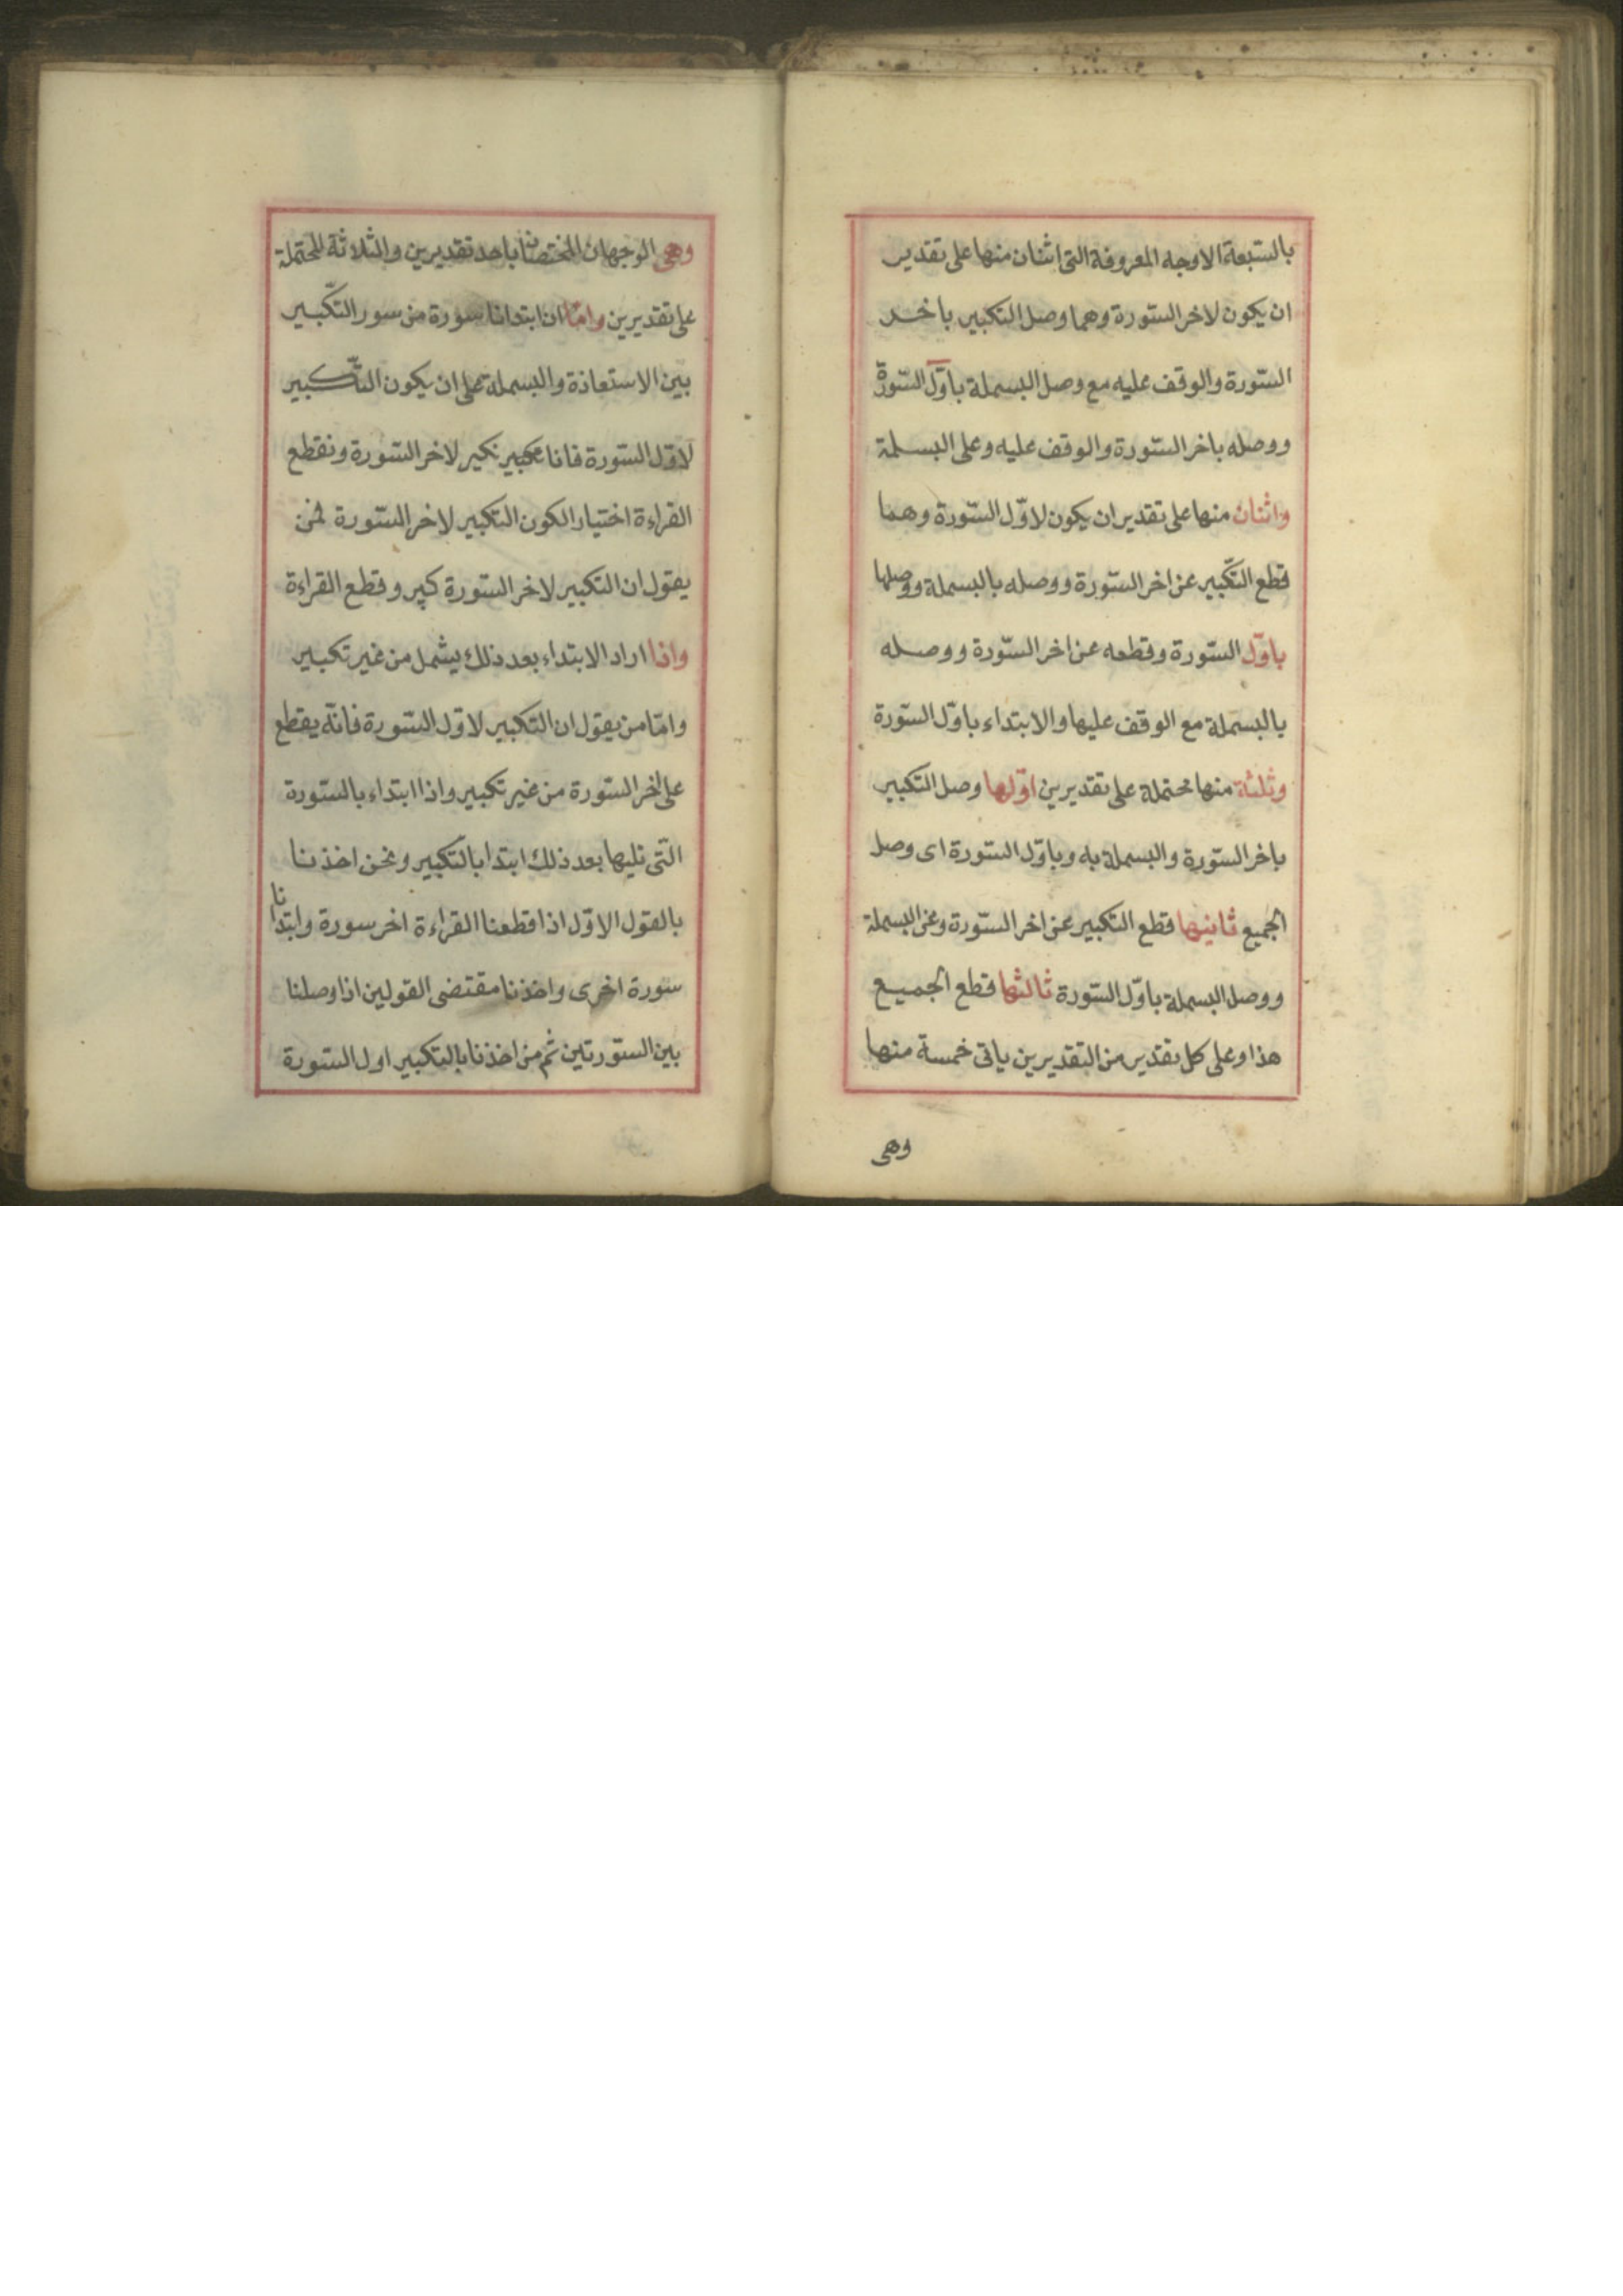 بالسّبعة الاوجه المعروفة التى اثنان منها على تقدير
ان يكون لاخر السّورة وهما وصل التكبير باخر
السّورة والوقف عليه مع وصل البسملة باوّل السّورة
ووصله باخر السّورة والوقف عليه وعلى البسملة
واثنان منها على تقدير ان يكون لاوّل السّورة وهما
قطع التكّبير عن اخر السّورة ووصله بالبسملة ووصلها
باوّل السّورة وقطعه عن اخر السّورة ووصله
بالبسملة مع الوقف عليها والابتداء باوّل السّورة
وثلثة منها محتملة على تقديرين اوّلها وصل التكبير
باخر السّورة والبسملة به وباوّل السّورة اى وصل
الجميع ثانيها قطع التكبير عن اخر السّورة وعن البسملة
ووصل البسملة باوّل السّورة ثالثها قطع الجميع
هذا وعلى كل تقدير من التقديرين ياتى خمسة منها
وهى
وهى الوجهان المختصان باحد تقديرين والثلاثة المحتملة
على تقديرين وامّا ان ابتدانا سورة من سور التكّبير
بين الاستعاذة والبسملة على ان يكون التّكبير
لاوّل السّورة فانا نكبر لاخر السّورة ونقطع
القراءة اختيار الكون التكبير لاخر السّورة فمن
يقول ان التكبير لاخر السّورة كبر وقطع القراءة
واذا اراد الابتداء بعد ذلك يشمل من غير تكبير
وامّا من يقول ان التكبير لاوّل السّورة فانّه يقطع
على اخر السّورة من غير تكبير واذا ابتداء بالسّورة
التّى تليها بعد ذلك ابتدا بالتّكبير ونحن اخذنا
بالقول الاوّل اذا قطعنا القراءة اخر سورة وابتدانا
سورة اخرى واخذنا مقتضى القولين اذا وصلنا
بين السّورتين ثم من اخذنا بالتكبير اول السّورة